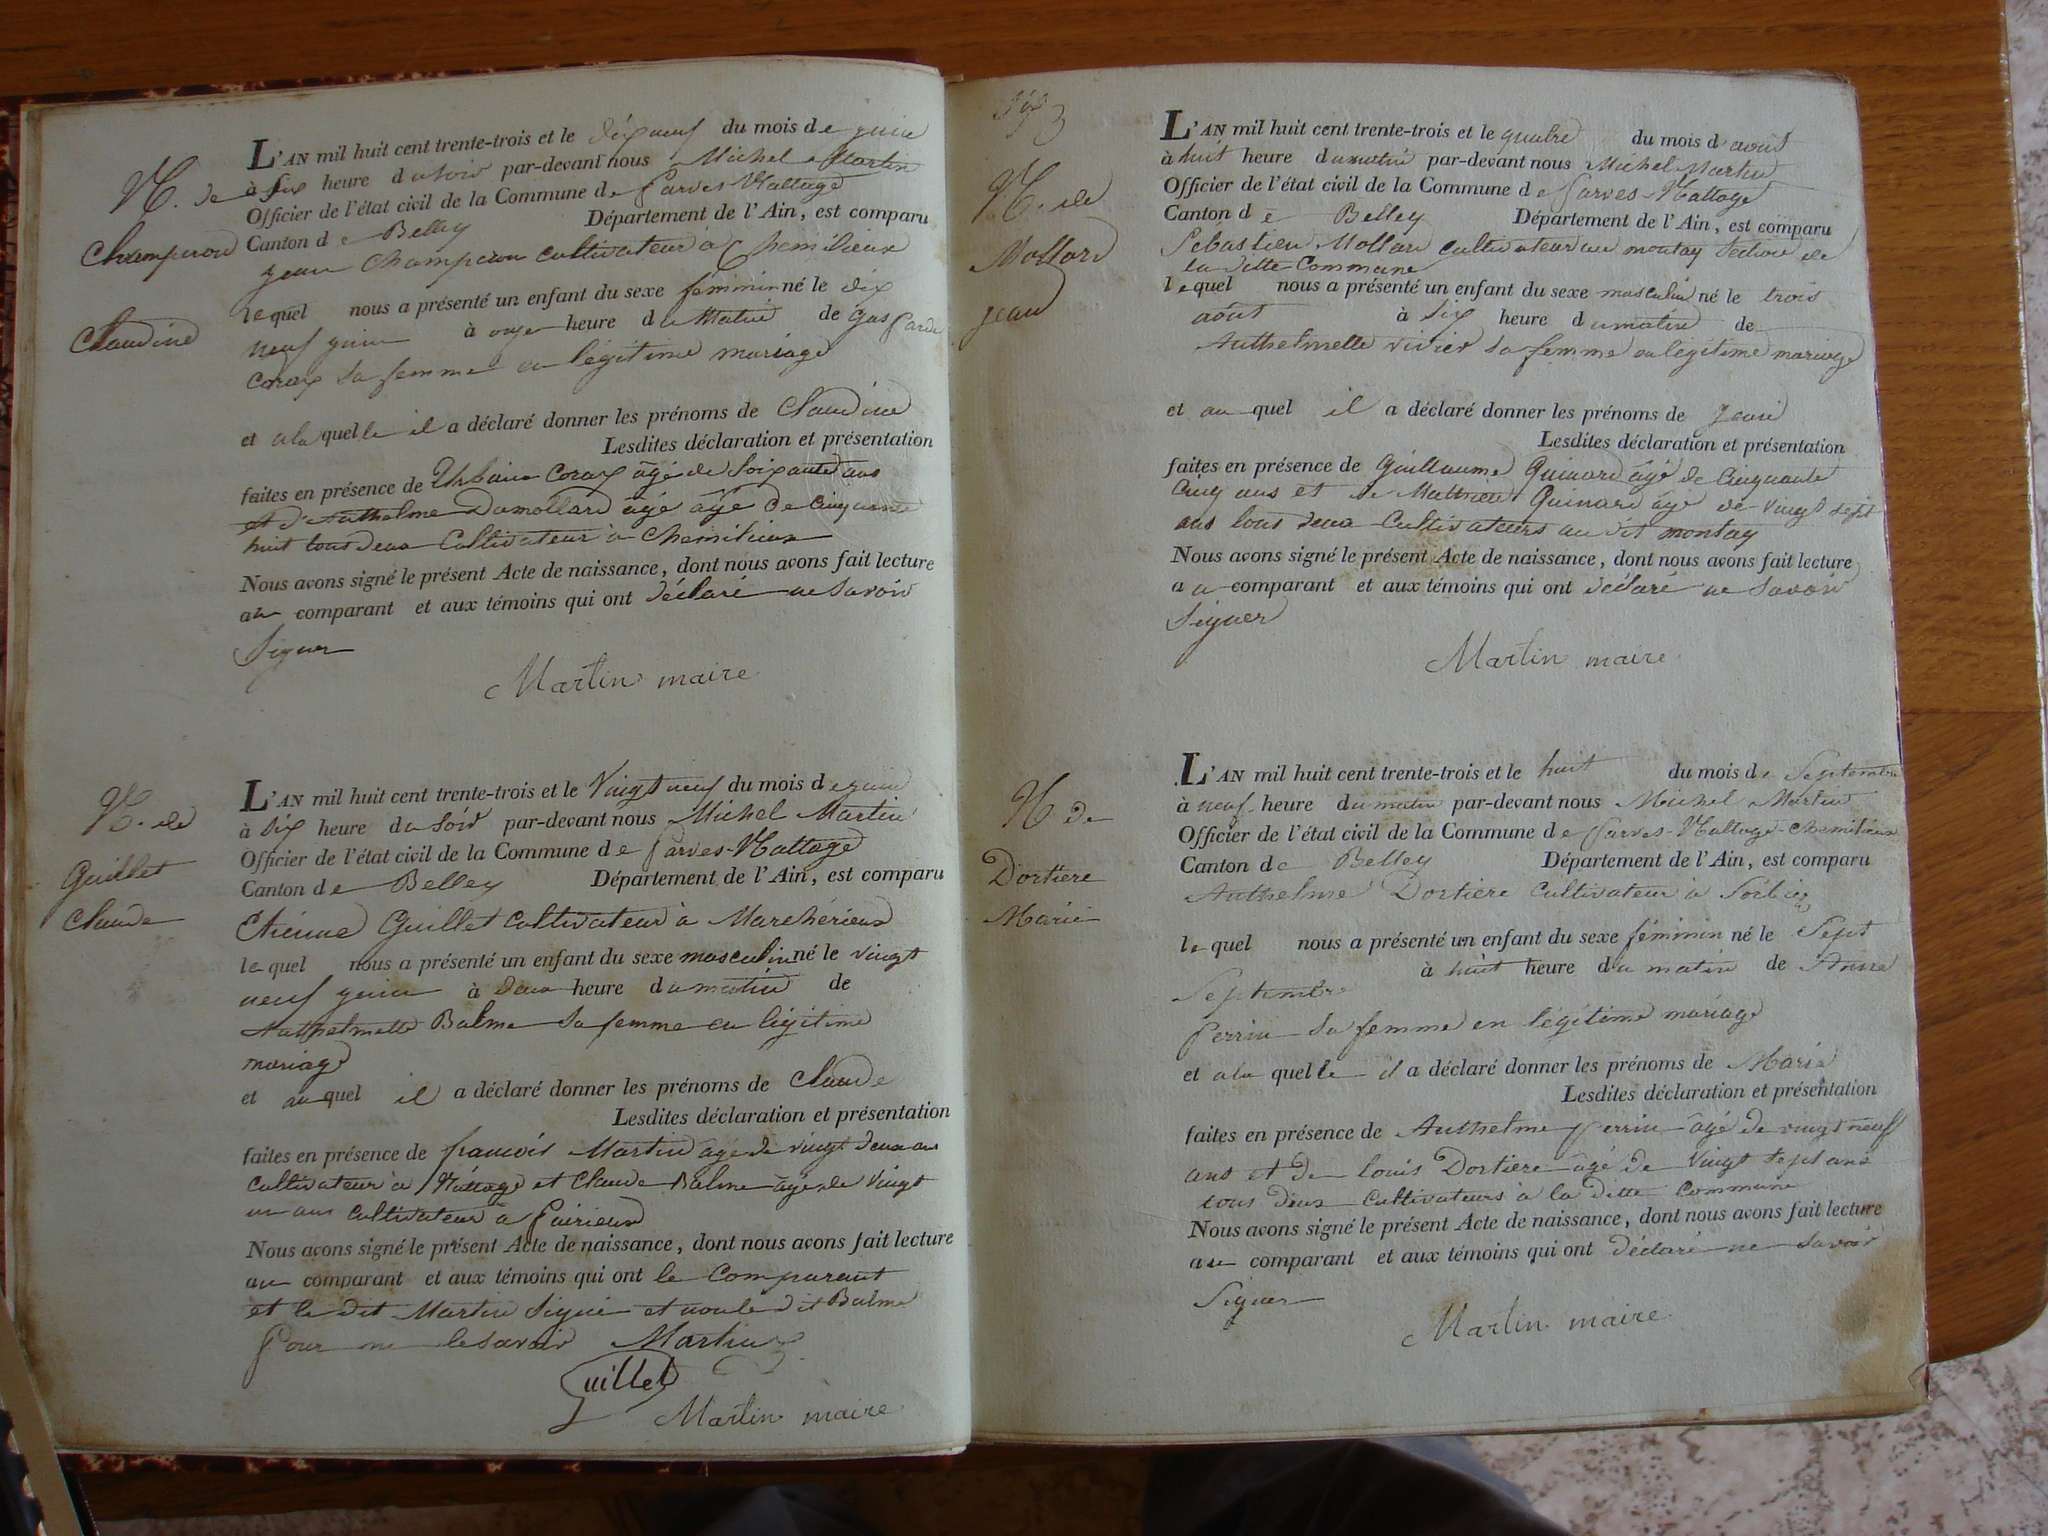 N. de
Champion
Claudine
L'AN mil huit cent trente-trois et le dix neuf du mois de juin
à six heure du soir par-devant nous Michel Martin
Officier de l'état civil de la Commune de Parves Nattage
Canton de Belley Département de l'Ain, est comparu
jean Champion cultivateur à Chemilieux
lequel nous a présenté un enfant du sexe féminin né le dix
neuf juin à onze heure du Matin de gasparde
Corax sa femme en légitime mariage
et a la quelle il a déclaré donner les prénoms de Claudine
Lesdites déclaration et présentation
faites en présence de Urbain Corax âgé de Soixante ans
et d'Anthelme Dumollard âgé âgé de Cinquante
huit tous deux Cultivateur à Chemilieux
Nous avons signé le présent Acte de naissance, dont nous avons fait lecture
au comparant et aux témoins qui ont déclaré ne Savoir
Signer
Martin maire
N. de
Guillet
Claude
L'AN mil huit cent trente-trois et le Vingt neuf du mois de juin
à six heure du Soir par-devant nous Michel Martin
Officier de l'état civil de la Commune de Parves-Nattage
Canton de Belley Département de l'Ain, est comparu
Etienne Guillet Cultivateur à Marchérieux
lequel nous a présenté un enfant du sexe masculin né le vingt
neuf juin à Deux heure du matin de
Anthelmette Balme sa femme en légitime
mariage
et au quel il a déclaré donner les prénoms de Claude
Lesdites déclaration et présentation
faites en présence de françois Martin âgé de vingt deux ans
Cultivateur à Nattage et Claude Balme âgé de Vingt
un ans Cultivateur à
Nous avons signé le présent Acte de naissance, dont nous avons fait lecture
au comparant et aux témoins qui ont le Comparant
et le dit Martin Signé et non le dit Balme
Pour ne le savoir Martin
Guillet
Martin maire
N. de
Mollard
jean
L'AN mil huit cent trente-trois et le quatre du mois d'août
à huit heure du matin par-devant nous Michel Martin
Officier de l'état civil de la Commune de Parves-Nattage
Canton de Belley Département de l'Ain, est comparu
Sébastien Mollard Cultivateur au montay Section de
la ditte Commune
lequel nous a présenté un enfant du sexe masculin né le trois
août à Six heure du matin de
Anthelmette vivier sa femme en légitime mariage
et au quel il a déclaré donner les prénoms de jean
Lesdites déclaration et présentation
faites en présence de Guillaume Quinard âgé de Cinquante
Cinq ans et de Mathieu Quinard âgé de vingt sept
ans tous deux Cultivateurs au dit montay
Nous avons signé le présent Acte de naissance, dont nous avons fait lecture
au comparant et aux témoins qui ont déclaré ne Savoir
Signer
Martin maire
N de
Dortiere
Marie
L'AN mil huit cent trente-trois et le huit du mois de Septembre
à neuf heure du matin par-devant nous Michel Martin
Officier de l'état civil de la Commune de Parves-Nattage-Chemilieux
Canton de Belley Département de l'Ain, est comparu
Anthelme Dortiere Cultivateur à Sorbier
lequel nous a présenté un enfant du sexe féminin né le Sept
Septembre à huit heure du matin de Anne
Perrin sa femme en légitime mariage
et a la quelle il a déclaré donner les prénoms de Marie
Lesdites déclaration et présentation
faites en présence de Anthelme Perrin âgé de vingt neuf
ans et de Louis Dortiere âgé de Vingt Sept ans
tous deux Cultivateurs à la ditte Commune
Nous avons signé le présent Acte de naissance, dont nous avons fait lecture
au comparant et aux témoins qui ont déclaré ne Savoir
Signer
Martin maire